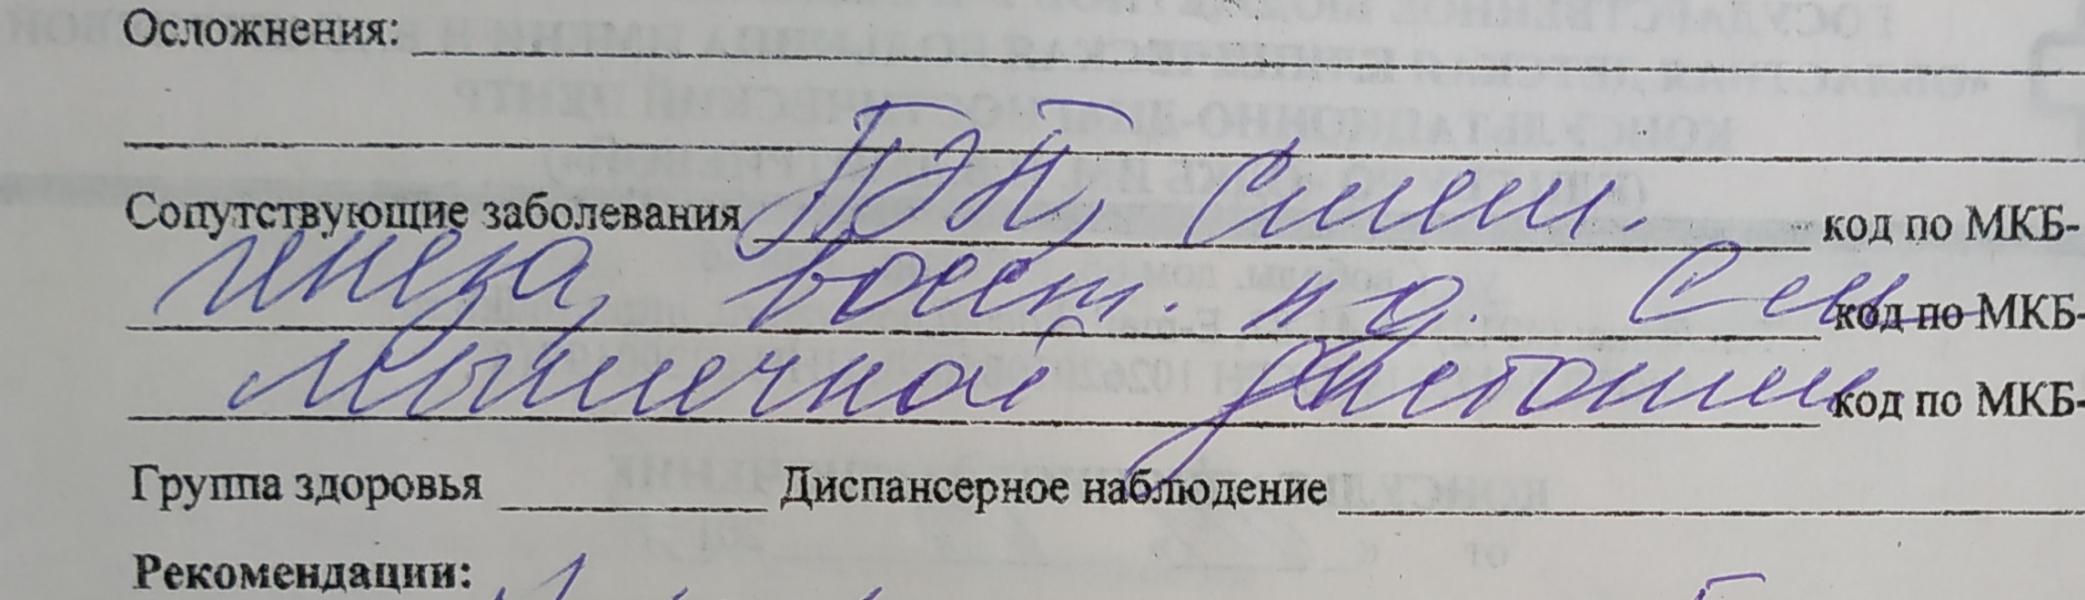 Осложнения:
Сопутствующие заболевания ПЭП, смеш. код по МКБ-
генеза, восст. пд. С-м код по МКБ-
мышечной дистонии код по МКБ-
Группа здоровья Диспансерное наблюдение
Рекомендации: